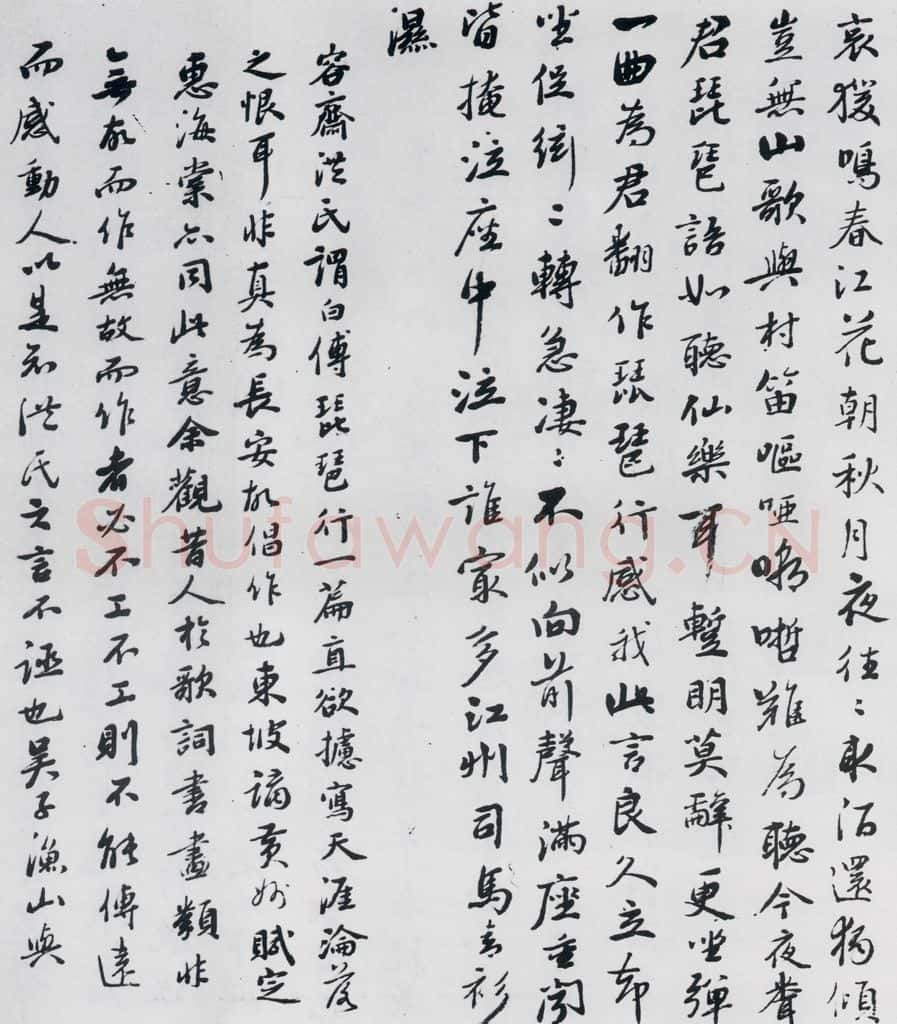 哀猨鳴春江花朝秋月夜往〻取酒還獨傾
豈無山歌與村笛嘔啞嘲哳難為聽今夜聞
君琵琶語如聽仙樂耳暫明莫辭更坐彈
一曲為君翻作琵琶行感我此言良久立却
坐促絃〻轉急凄〻不似向前聲滿座重聞
皆掩泣座中泣下誰寂多江州司馬青衫
濕
容齋洪氏謂白傅琵琶行一篇直欲攄寫天涯淪落
之恨耳非真為長安故倡作也東坡謫黃州賦定
惠海棠亦同此意余觀昔人於歌詞書畫類非
無故而作無故而作者必不工不工則不能傳遠
而感動人以是知洪氏之言不誣也吳子漁山與
Shufawang.CN